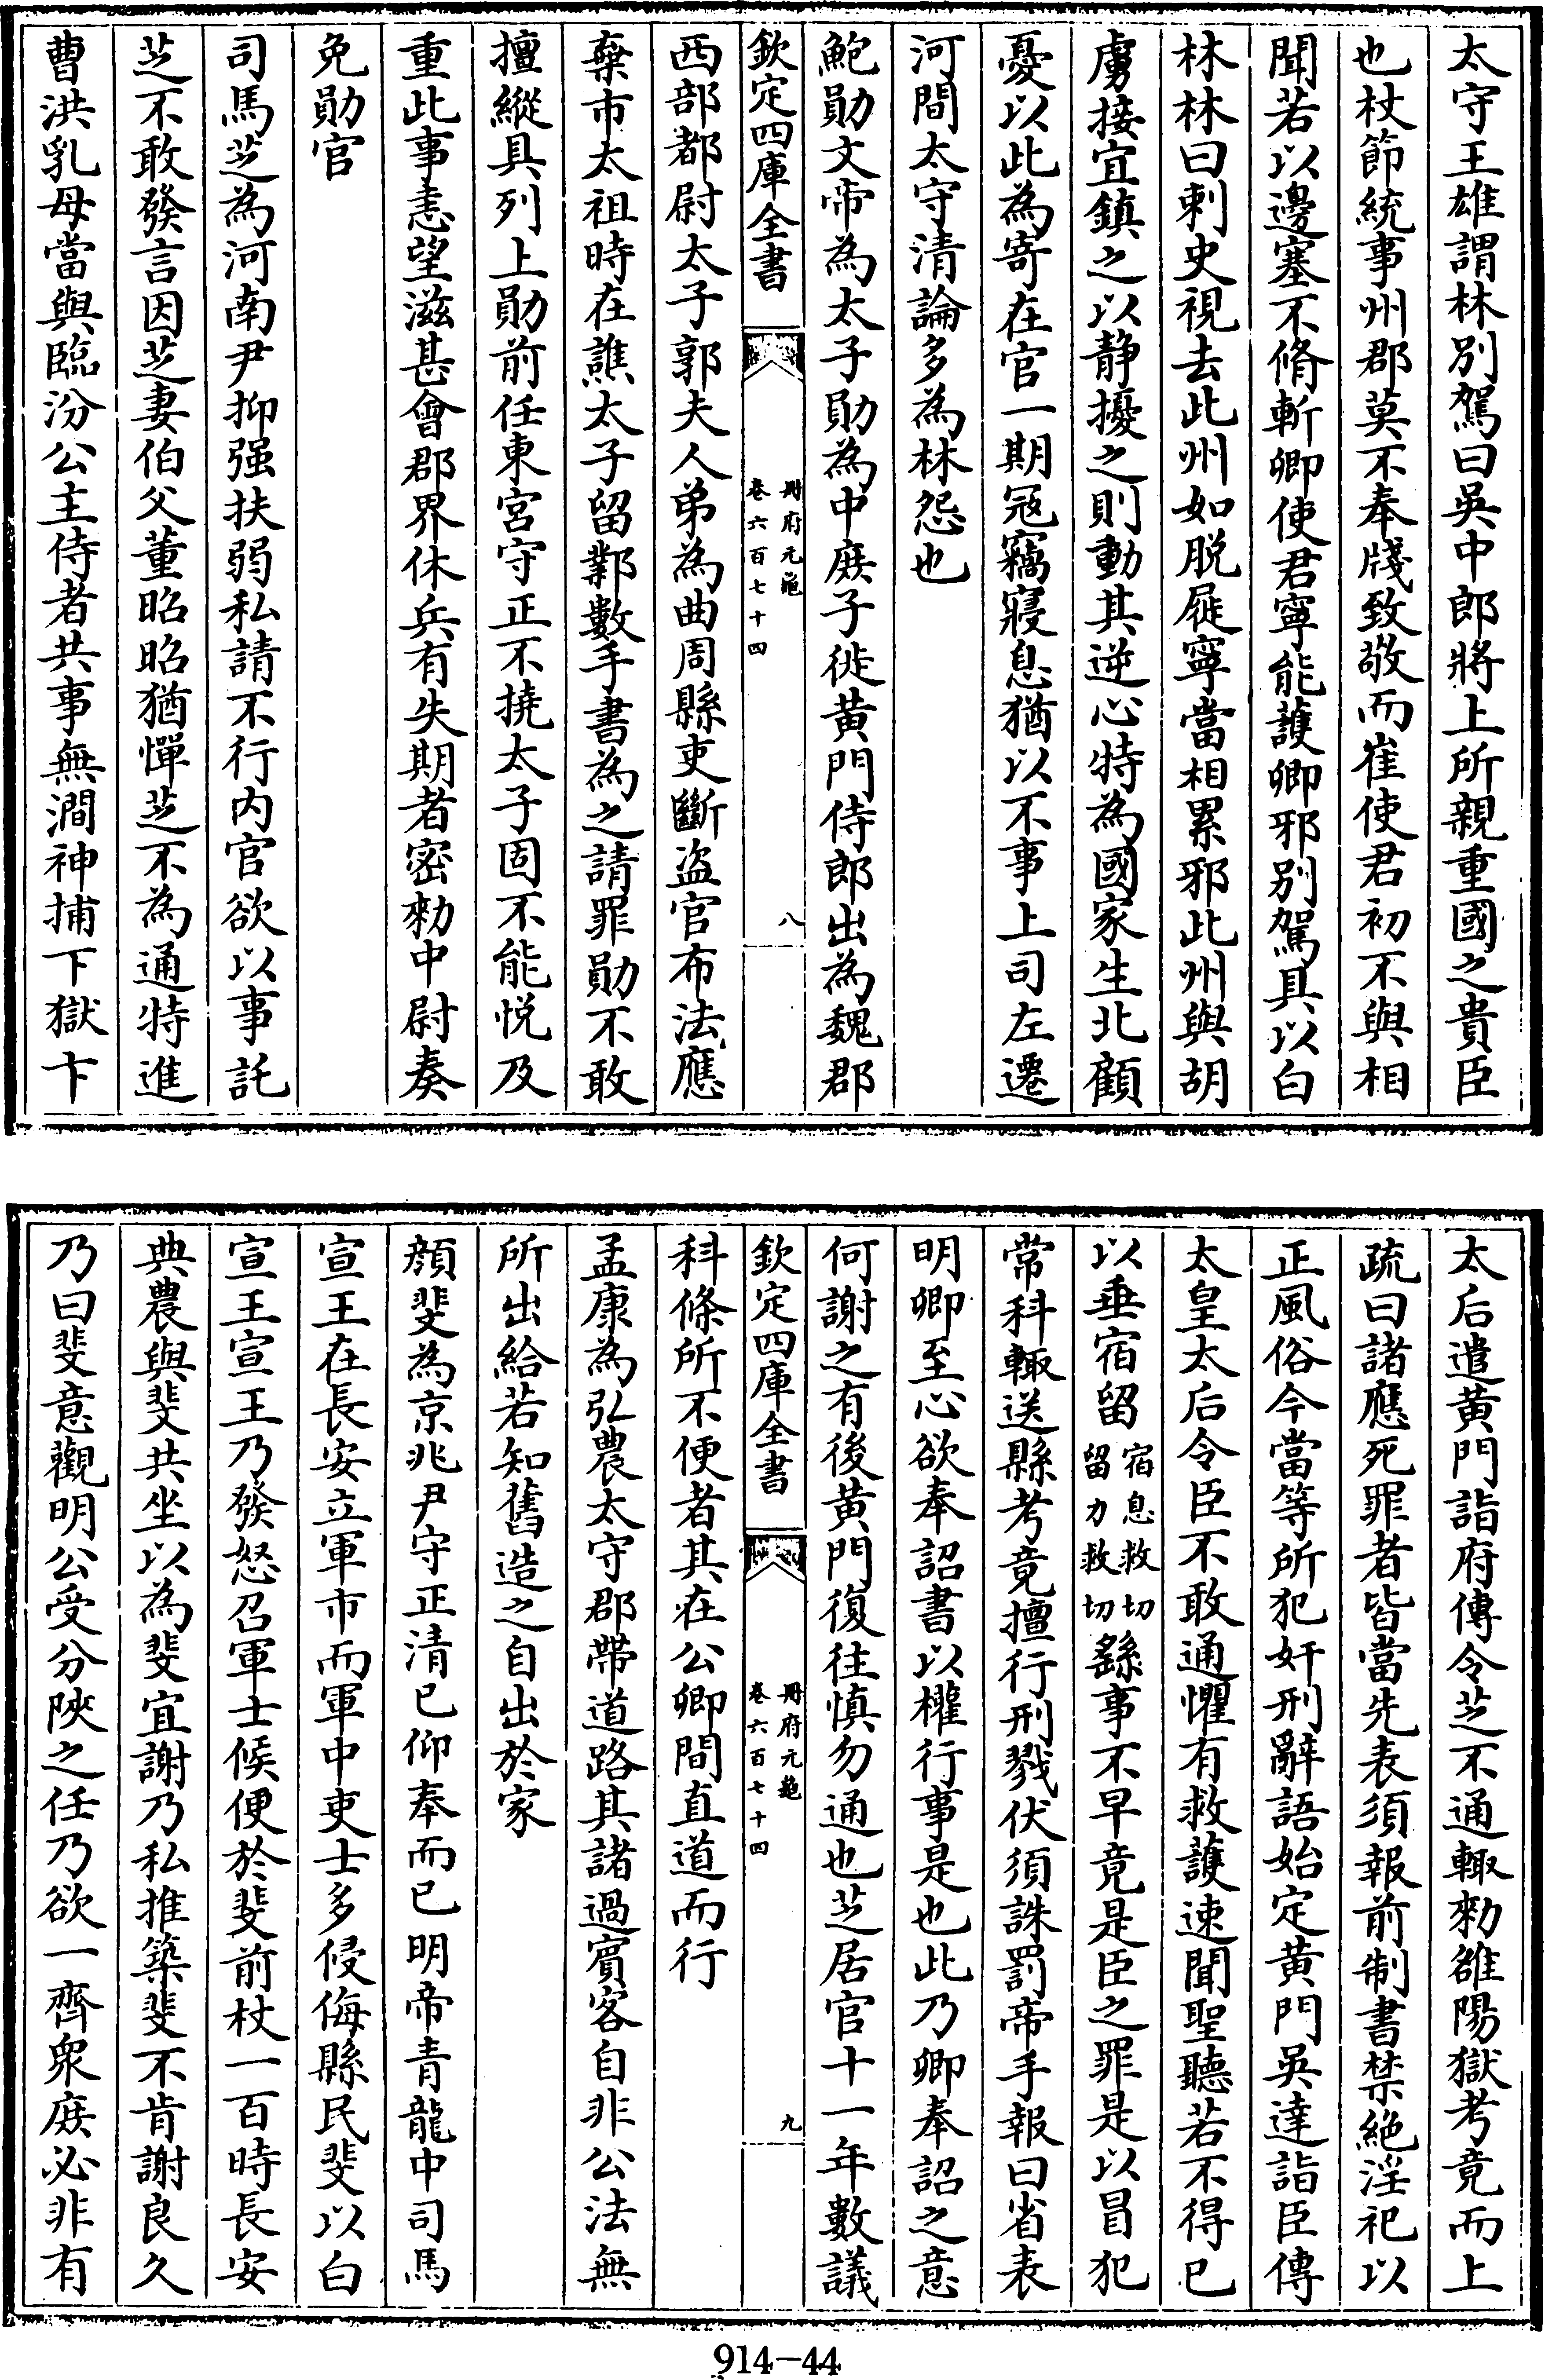 太守王雄謂林别駕曰吳中郎將上所親重國之貴臣
也杖節統事州郡莫不奉牋致敬而崔使君初不與相
聞若以邊塞不脩斬卿使君寧能䕶卿邪别駕具以白
林林曰刺史視去此州如脱屣寧當相累邪此州與胡
虜接宜鎮之以静擾之則動其逆心特為國家生北顧
憂以此為寄在官一期冦竊寢息猶以不事上司左遷
河間太守清論多為林怨也
鮑勛文帝為太子勛為中庶子徙黄門侍郎出為魏郡
欽定四庫全書
冊府元龜
卷六百七十四
八
西部都尉太子郭夫人弟為曲周縣吏斷盜官布法應
棄市太祖時在譙太子留鄴數手書為之請罪勛不敢
擅縱具列上勛前任東宮守正不撓太子固不能悦及
重此事恚望滋甚會郡界休兵有失期者密勑中尉奏
免勛官
司馬芝為河南尹抑强扶弱私請不行内官欲以事託
芝不敢發言因芝妻伯父董昭昭猶憚芝不為通特進
曹洪乳母當與臨汾公主侍者共事無澗神捕下獄卞
太后遣黄門詣府傳令芝不通輙勑雒陽獄考竟而上
疏曰諸應死罪者皆當先表須報前制書禁絶淫祀以
正風俗今當等所犯奸刑辭語始定黄門吳達詣臣傳
太皇太后令臣不敢通懼有救䕶速聞聖聽若不得已
以垂宿留宿息救切留力救切繇事不早竟是臣之罪是以冒犯
常科輙送縣考竟擅行刑戮伏須誅罰帝手報曰省表
明卿至心欲奉詔書以權行事是也此乃卿奉詔之意
何謝之有後黄門復往慎勿通也芝居官十一年數議
欽定四庫全書
冊府元龜
卷六百七十四
九
科條所不便者其在公卿間直道而行
孟康為弘農太守郡帶道路其諸過賓客自非公法無
所出給若知舊造之自出於家
顔斐為京兆尹守正清已仰奉而已明帝青龍中司馬
宣王在長安立軍市而軍中吏士多侵侮縣民斐以白
宣王宣王乃發怒召軍士候便於斐前杖一百時長安
典農與斐共坐以為斐宜謝乃私推築斐不肯謝良久
乃曰斐意觀明公受分陜之任乃欲一齊衆庶必非有
914-44